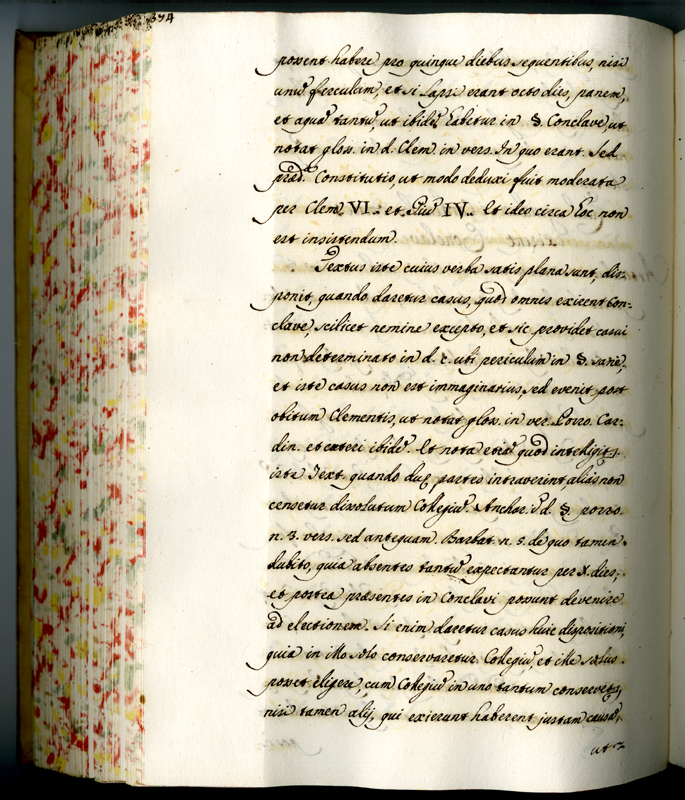 334
possent habere pro quinque diebus sequentibus, nisi
unũ ferculum, et si lapsi erant octo dies, panem,
et aquã tantũ, ut ibidẽ habetur in §. Conclave, ut
notat gloss. in d. Clem. in vers. In quo erant. Sed
præd.ª Constitutio, ut modo deduxi fuit moderata
per Clem. VI. et Piũ IV. Et ideo circa hoc non
est insistendum.
Textus iste cuius verba satis plana sunt, dis-
ponit, quando daretur casus, quod omnes exirent Con-
clave, scilicet nemine excepto, et sic providet casui
non determinato in d. c. ubi periculum in §. sane,
et iste casus non est immaginarius, sed evenit post
obitum Clementis, ut notat gloss. in ver. Porro. Car-
din. et cæteri ibidẽ. Et nota etiã quod intelligit.
iste Text. quando duę partes intraverint, alias non
censetur dissolutum Collegiũ. Anchar. ĩ d. §. porro.
n. 3. vers. sed antequam. Barbat. n. 5. de quo tamen
dubito, quia absentes tantũ expectantur per X. dies,
et postea præsentes in Conclavi possunt devenire
ad electionem. Si enim daretur casus huic dispositioni,
quia in illo solo conservaretur Collegiũ, et ille solus
posset eligere, cum Collegiũ in uno tantum conservetur,
nisi tamen alij, qui exierunt haberent justam causã,
ut